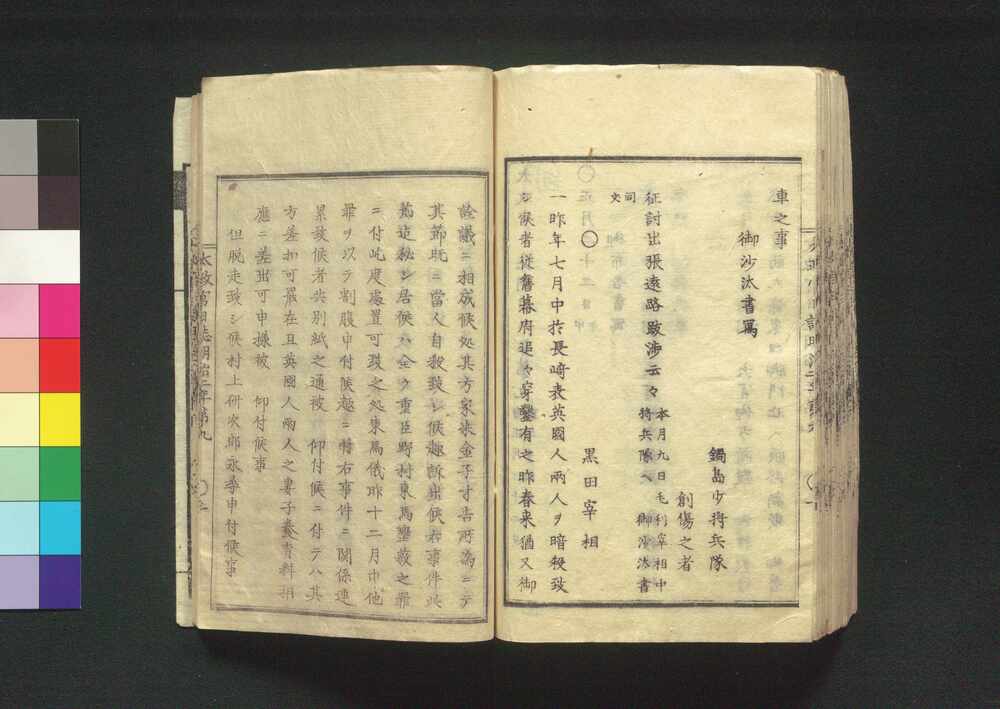 車之事
御沙汰書寫
鍋島少将兵隊
創傷之者
征討出張遠路跋渉云々 本月九日毛利宰相中
将兵隊ヘ 御沙汰書
同文
黒田宰相
一昨年七月中於長崎表英國人兩人ヲ暗殺致
シ候者従舊幕府追々穿鑿有之昨春来猶又御
詮議ニ相成候処其方家来金子才吉所為ニテ
其節既ニ當人自殺致シ候趣訴出候右事件此
節迄秘シ居候ハ全ク重臣野村東馬壅蔽之罪
ニ付此度處置可致之処東馬儀昨十二月中他
罪ヲ以テ割腹申付候趣ニ将右事件ニ関係連
累致候者共別紙之通被 仰付候ニ付テハ其
方差扣可罷在且英國人兩人之妻子養育料相
應ニ差出可申様被 仰付候事
但脱走致シ候村上研次郎永牽申付候事
太政官日誌明治二年第九